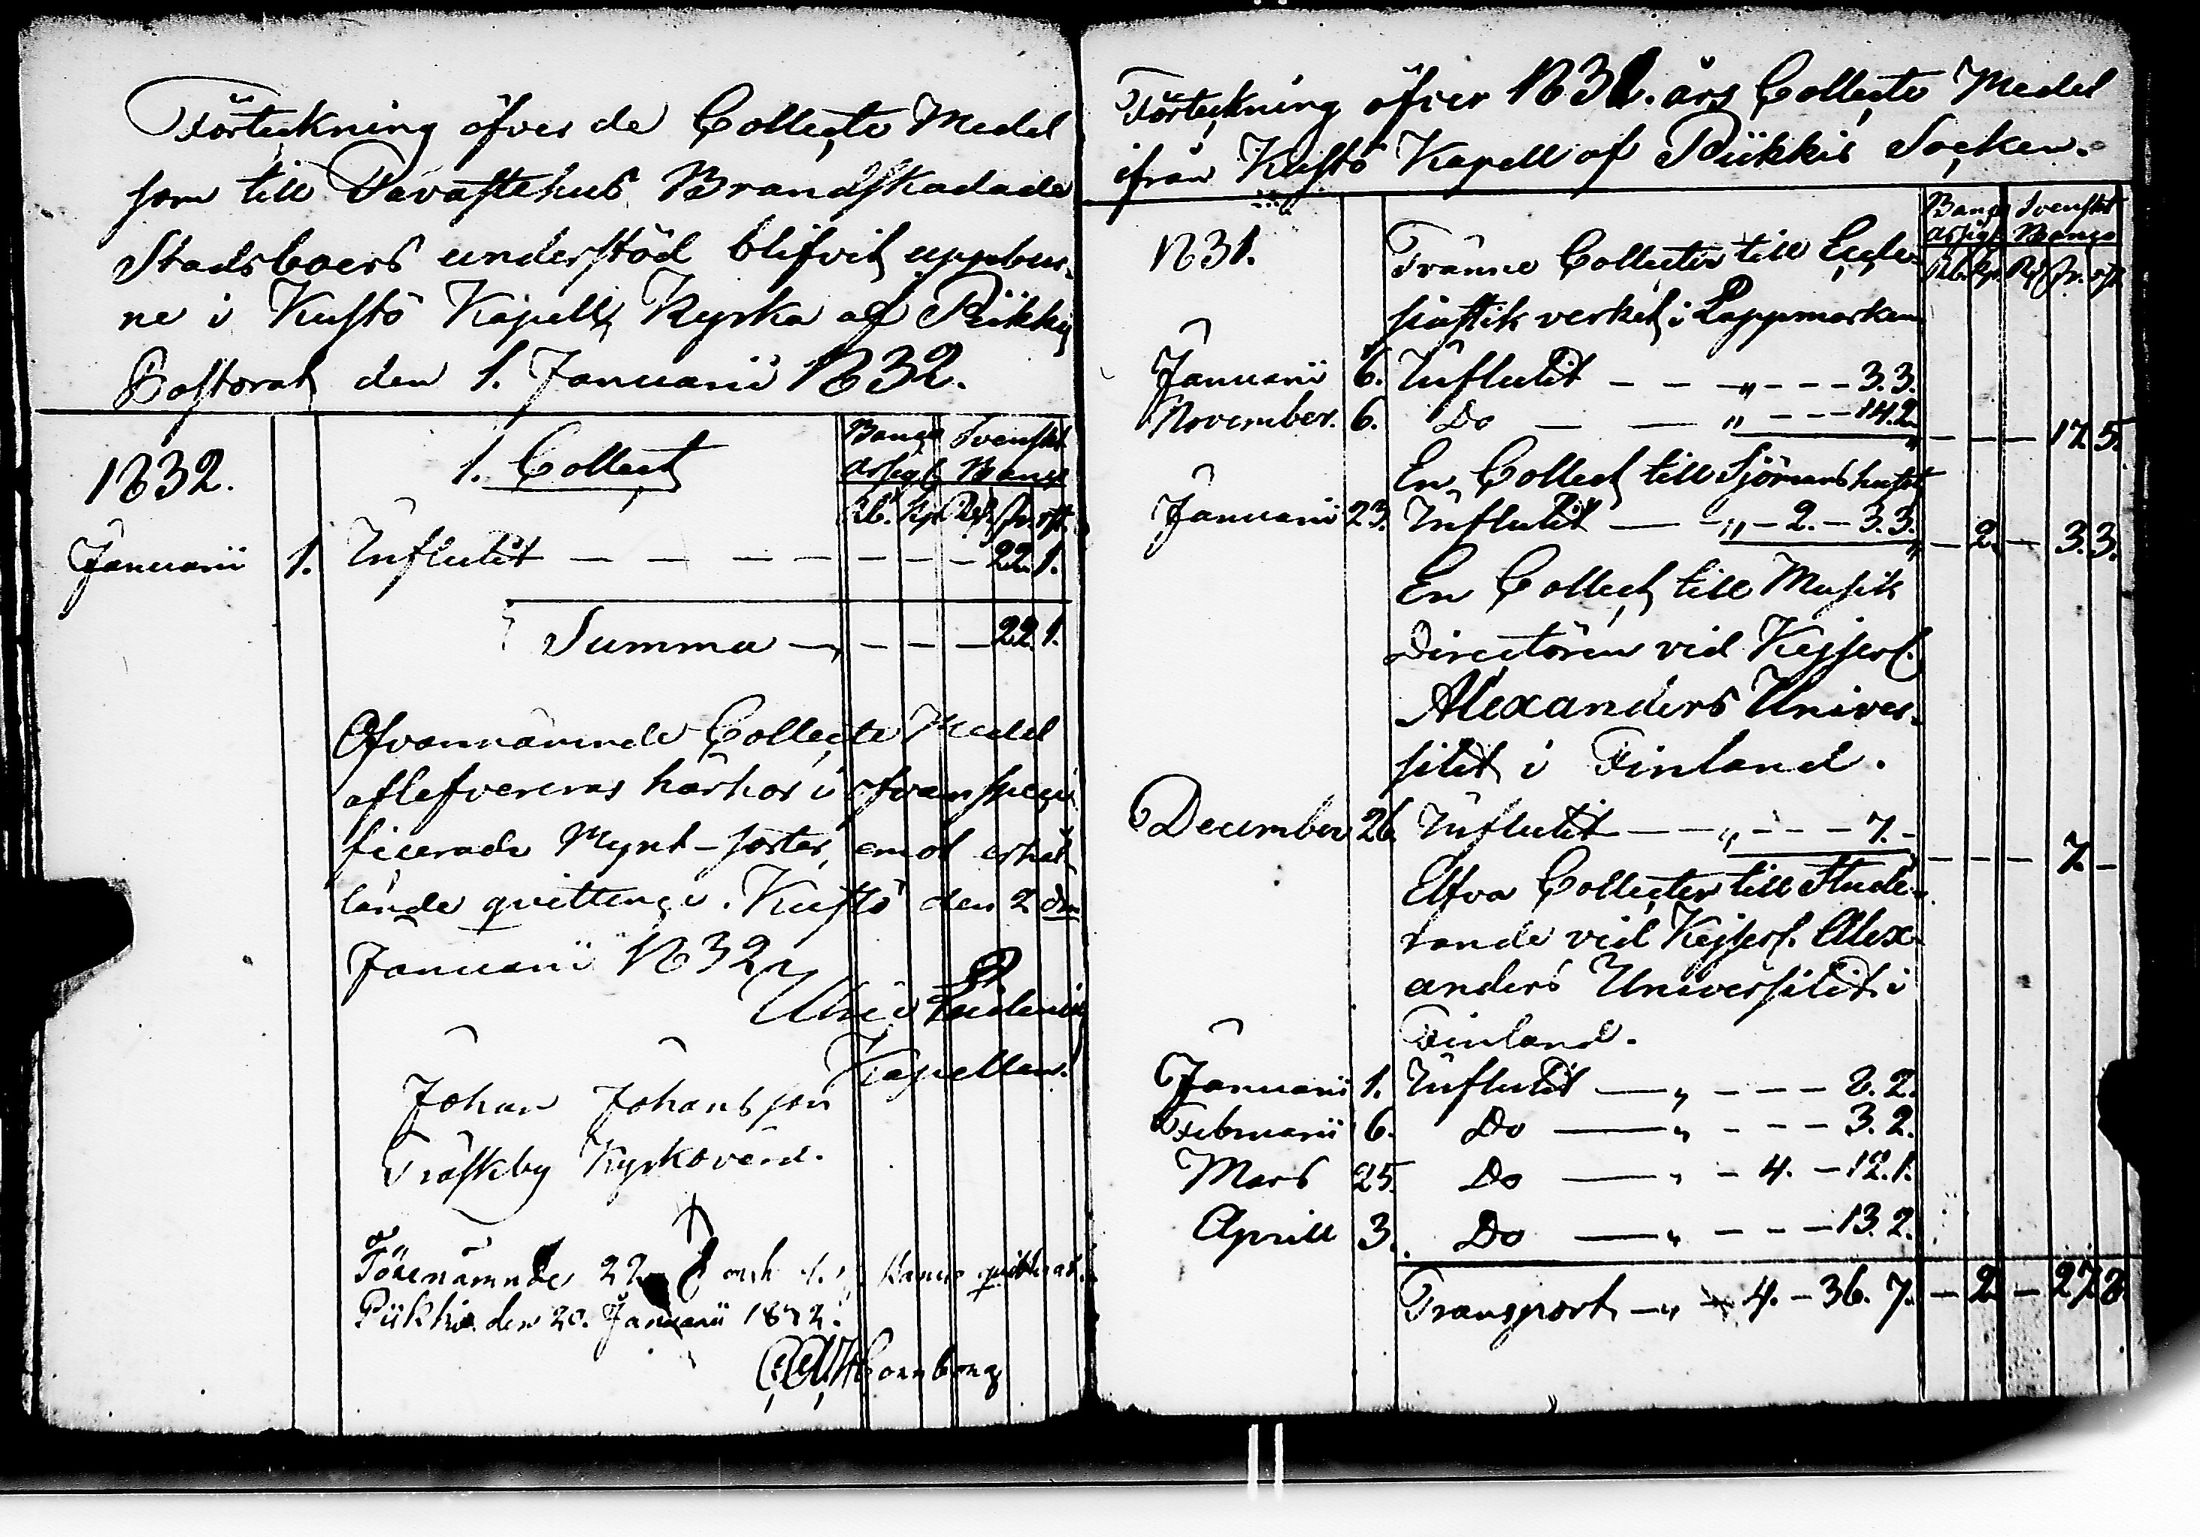 Förteckning öfver de Collecte Medel
som till Tavastehus Brandskadade
Stadsboers understöd blifvit uppbur-
ne i Kustö Kapells Kyrka af Piikkis
Pastorat den 1. Januarii 1832.
1832. 1. Collect Banco Assign. Svenskt Banco
Rb. Kp. Rd. sk. rst.
Januarii 1. Influtit — — — — — — — 22. 1.
Summa — — — — 22. 1.
Ofvannämnde Collecte Medel
aflefvereras härhos i ofvanspeci
ficerade Mynt-sorter, emot erhål
lande qvittence. Kustö den 2 dra
Januarii 1832.
Kapellan.
Johan Johansson
Träskby Kyrkovärd.
Förenämnde 22 och 1. Banco quitteras.
Piikkis den 20. Januarii 1832.
Förteckning öfver 1831. års Collecte Medel
ifrån Kustö Kapell af Piikkis Socken.
Banco Assign. Svenskt Banco
1831. Tvänne Collecter till Eccle-
Rb. Kp. Rd. sk. rst.
siastik verket i Lappmarken
Januarii 6. Influtit — — „ — — — 3. 3.
November. 6. Do — — „ — — — 14. 2.
„ — — — 17. 5.
En Collect till Sjömanshuset
Januarii 23. Influtit — „ — 2. — 3. 3.
„ — 2. — 3. 3.
En Collect till Musik
Directören vid Kejserl.
Alexanders Univer-
sitet i Finland.
December 26. Influtit — — „ — — — 7. —
— — — 7. —
Elfva Collecter till Stude-
rande vid Kejserl. Alex-
anders Universitet i
Finland.
Januarii 1. Influtit — „ — — — 8. 2.
Februarii 6. Do — „ — — — 3. 2.
Mars 25. Do — „ — 4. — 12. 1.
Aprill 3. Do — „ — — — 13. 2.
Transport — „ — 4. — 36. 7. — 2. — 27. 8.